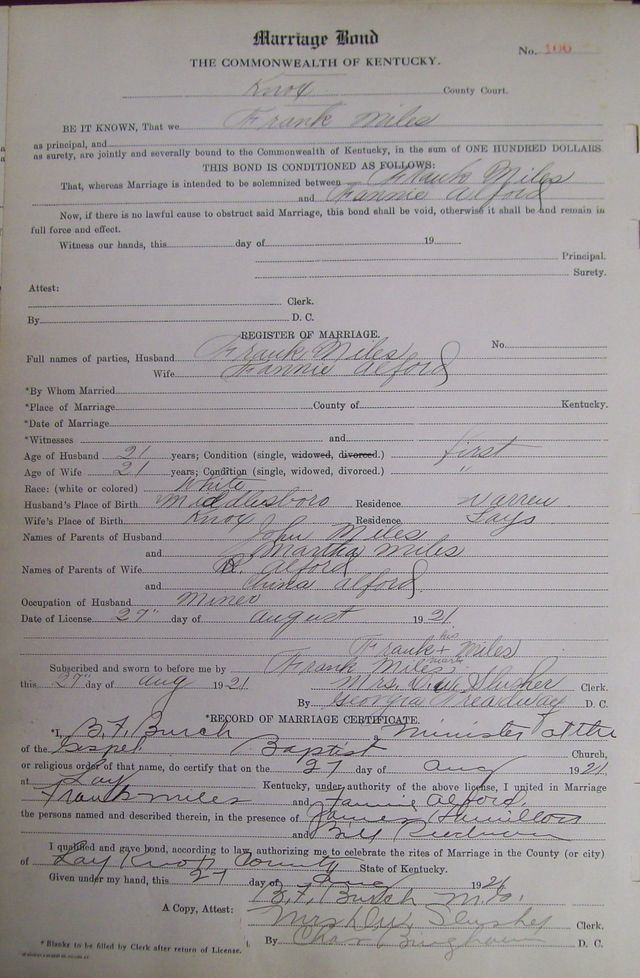 Marriage Bond
No. 100
THE COMMONWEALTH OF KENTUCKY.
Knox County Court.
BE IT KNOWN, That we Frank Miles
as principal, and
as surety, are jointly and severally bound to the Commonwealth of Kentucky, in the sum of ONE HUNDRED DOLLARS
THIS BOND IS CONDITIONED AS FOLLOWS:
That, whereas Marriage is intended to be solemnized between Frank Miles
and Fannie Alford
Now, if there is no lawful cause to obstruct said Marriage, this bond shall be void, otherwise it shall be and remain in
full force and effect.
Witness our hands, this day of 19
Principal.
Surety.
Attest:
Clerk.
By D. C.
REGISTER OF MARRIAGE.
No.
Full names of parties, Husband Frank Miles
Wife Fannie Alford
*By Whom Married
*Place of Marriage County of Kentucky.
*Date of Marriage
*Witnesses and
Age of Husband 21 years; Condition (single, widowed, divorced.) first
Age of Wife 21 years; Condition (single, widowed, divorced.) "
Race: (white or colored) White
Husband's Place of Birth Middlesboro Residence Warren
Wife's Place of Birth Knox Residence Lays
Names of Parents of Husband John Miles
and Martha Miles
Names of Parents of Wife R. Alford
and China Alford
Occupation of Husband Miner
Date of License 27" day of August 1921
Frank his + mark Miles
Subscribed and sworn to before me by Frank Miles
this 27" day of Aug 1921 Mrs. D. W. Slusher Clerk.
By Georgia Treadway D. C.
*RECORD OF MARRIAGE CERTIFICATE.
*I, B. F. Burch, Minister of the
of the Gospel Baptist Church,
or religious order of that name, do certify that on the 27 day of Aug 1921,
at Lay Kentucky, under authority of the above license, I united in Marriage
Frank Miles and Fannie Alford,
the persons named and described therein, in the presence of James
and Bill
I qualified and gave bond, according to law, authorizing me to celebrate the rites of Marriage in the County (or city)
of Lay Knox County State of Kentucky.
Given under my hand, this 27 day of Aug 1921
B. F. Burch M. G.
A Copy, Attest: Mrs D. W. Slusher Clerk.
By Chas Bingham D. C.
*Blanks to be filled by Clerk after return of License.